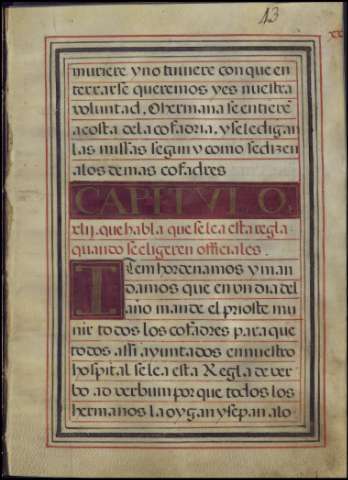 13
muriere y no tuuiere con que en
terrarse queremos y es nuestra
voluntad. O hermaña se entierē
a costa de la cofadria, y se le digan
las missas segun y como se dizen
a los demas cofadres
CAPITVLO.
xlij. que habla que se lea esta regla
quando se eligeren officiales.
Item hordenamos y man
damos que en vn dia del
año mande el prioste mu
nir todos los cofadres para que
todos assi ayuntados en nuestro
hospital se lea esta Regla de ver
bo ad verbum porque todos los
hermanos la oygan y sepan a lo